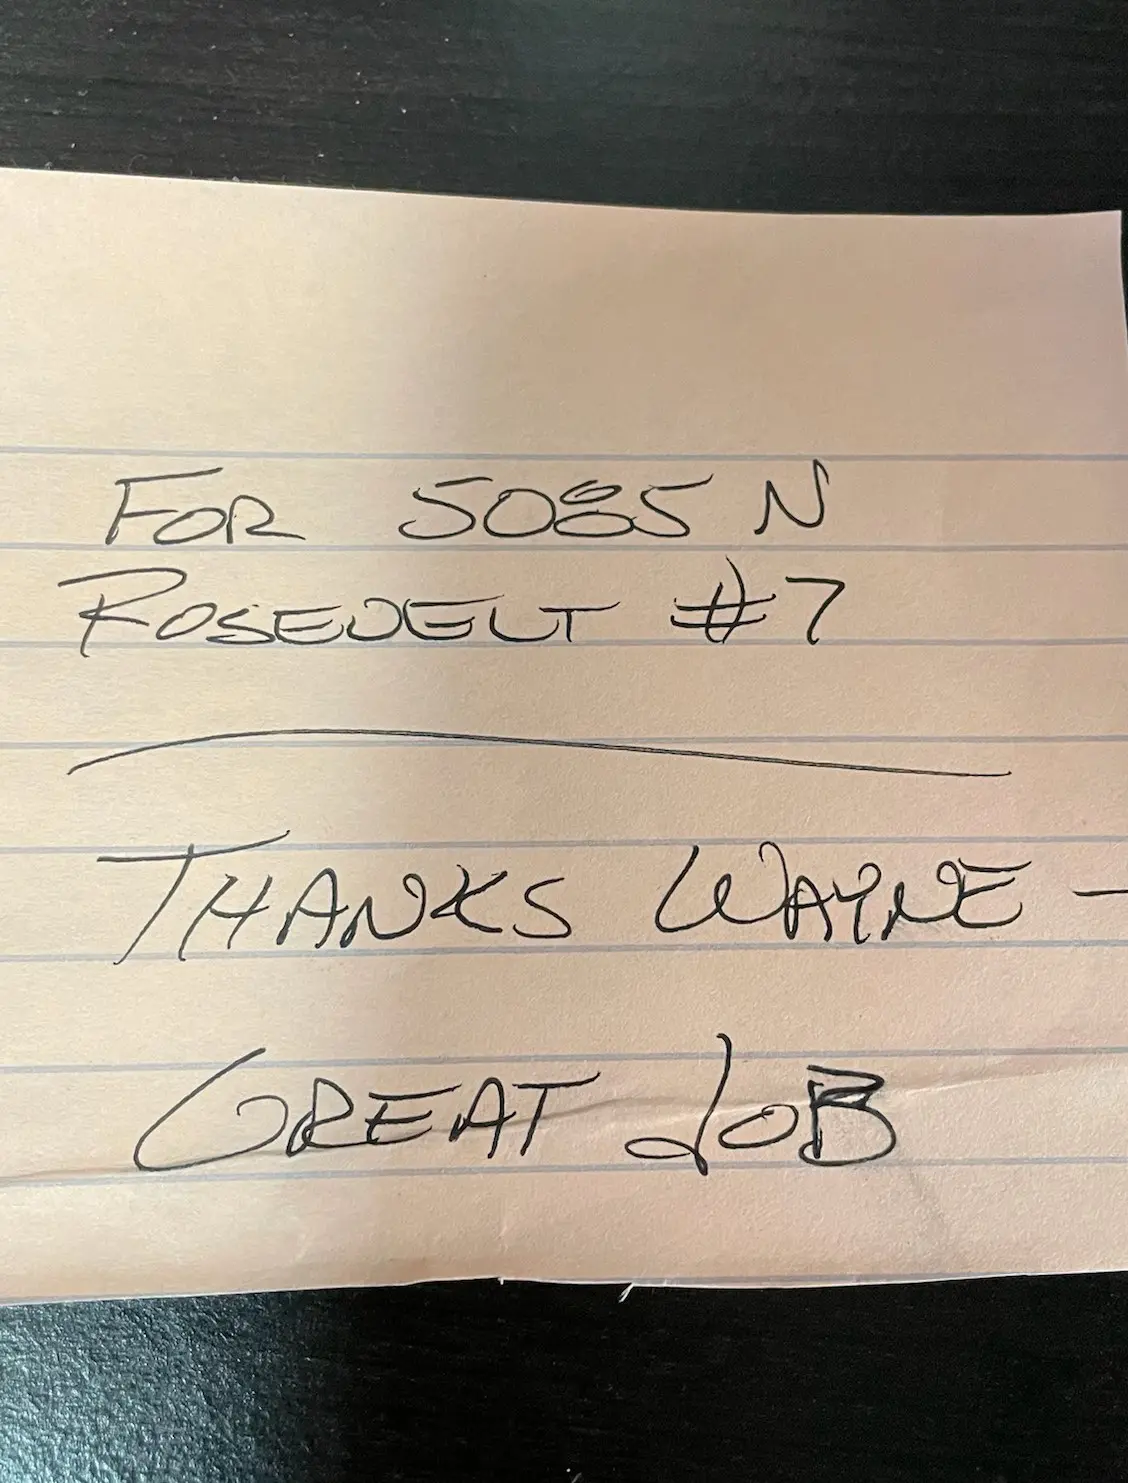 FOR 5085 N
ROSEVELT #7
THANKS WAYNE -
GREAT JOB